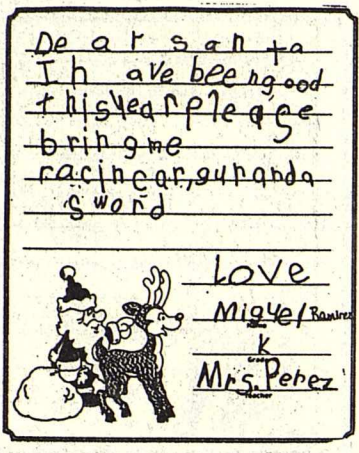 Dear santa
I have been good
this year pleage
bring me
racin car, gun and a
sword
Love
Miguel Ramirez
Name
K
Grade
Mrs. Perez
Teacher